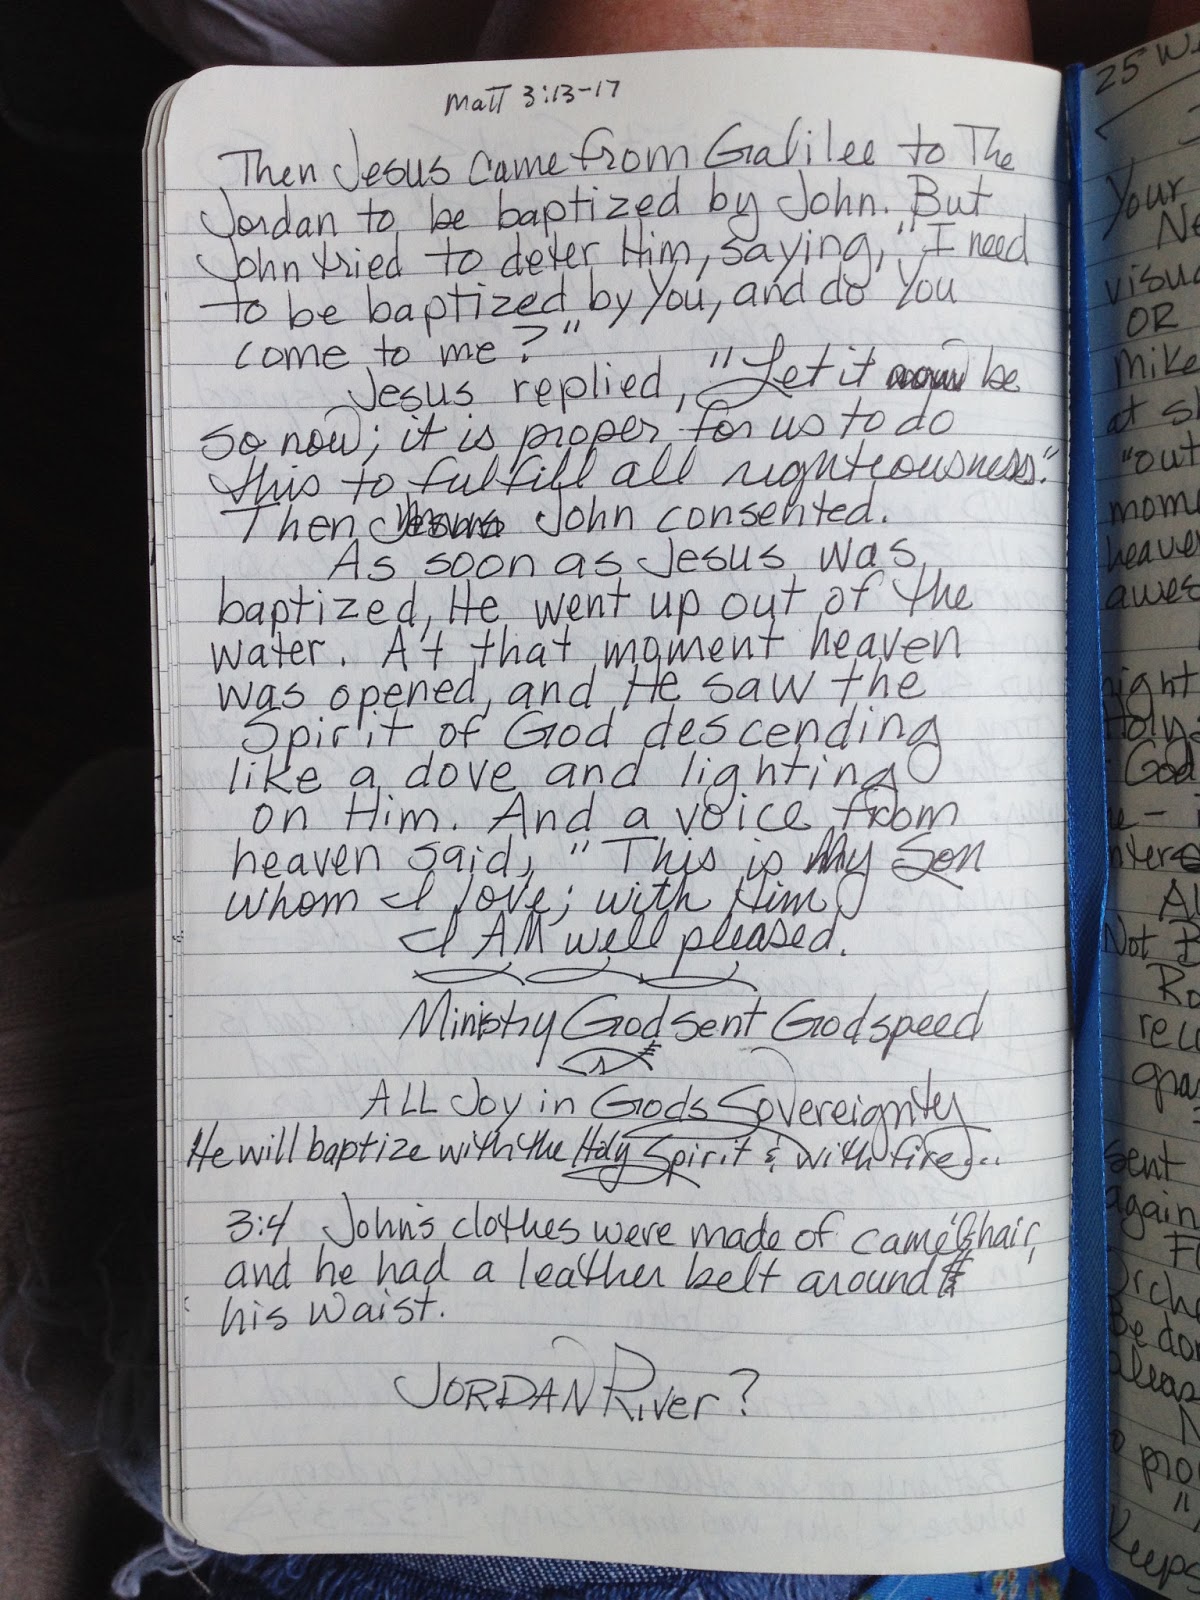 Matt 3:13-17
Then Jesus came from Galilee to The
Jordan to be baptized by John. But
John tried to deter Him, saying, "I need
to be baptized by You, and do You
come to me?"
Jesus replied, "Let it now be
so now; it is proper for us to do
this to fulfill all righteousness."
Then Jesus John consented.
As soon as Jesus was
baptized, He went up out of the
water. At that moment heaven
was opened, and He saw the
Spirit of God descending
like a dove and lighting
on Him. And a voice from
heaven said, "This is My Son
whom I love; with Him
I AM well pleased.
Ministry God sent Godspeed
ALL Joy in Gods Sovereignty
He will baptize with the Holy Spirit & with fire...
3:4 John's clothes were made of camel's hair,
and he had a leather belt around
his waist.
JORDAN River?
25
Your
visua
OR
Mike
at s
"out
mom
heaver
awes
ight
Holy
God
Not B
Ro
gra
sent
again
Orche
Be dor
pro
Keeps